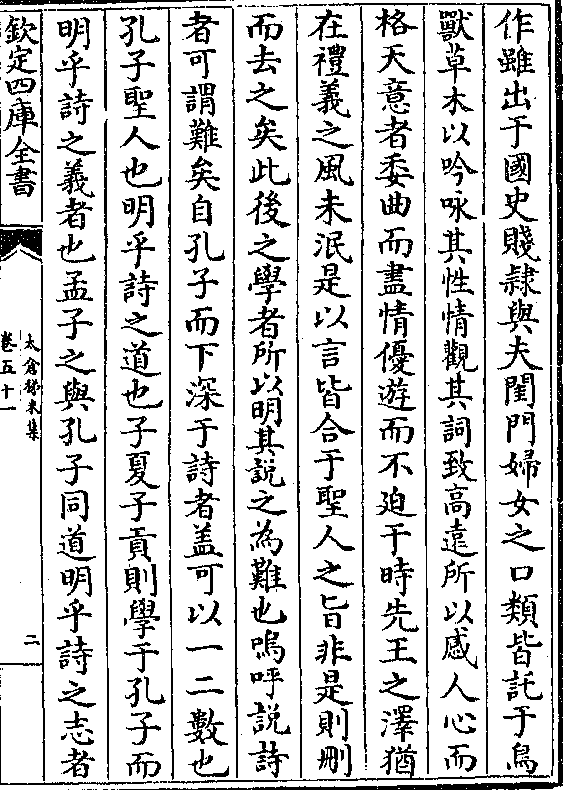 作雖出于國史賤隷與夫閨門婦女之口類皆託于鳥
獸草木以吟咏其性情觀其詞致高遠所以感人心而
格天意者委曲而盡情優遊而不迫于時先王之澤猶
在禮義之風未泯是以言皆合于聖人之旨非是則刪
而去之矣此後之學者所以明其說之為難也嗚呼說詩
者可謂難矣自孔子而下深于詩者盖可以一二數也
孔子聖人也明乎詩之道也子夏子貢則學于孔子而
明乎詩之義者也孟子之與孔子同道明乎詩之志者
欽定四庫全書
太倉稊米集
卷五十一
二